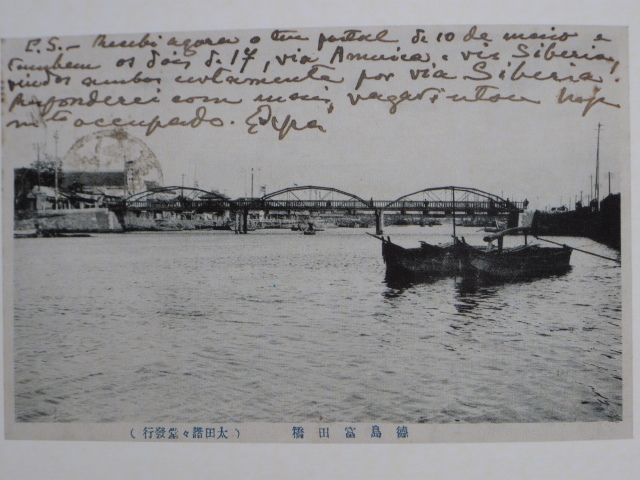 P.S. – Recebi agora o teu postal de 10 de maio e
tambem os dois de 17, via America e via Siberia,
vindos ambos certamente por via Siberia.
Responderei com mais vagar
m.to occupado.
德島富田橋
(太田 々堂發行)